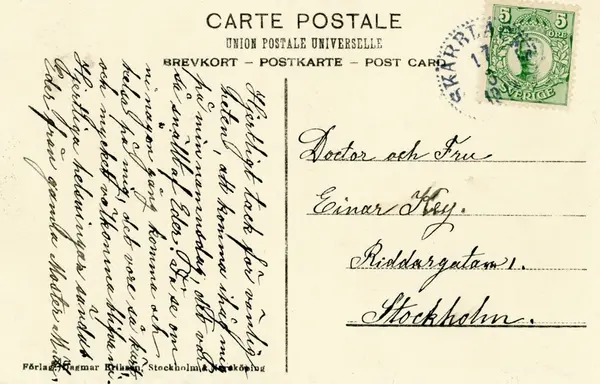 CARTE POSTALE
UNION POSTALE UNIVERSELLE
BREVKORT — POSTKARTE — POST CARD
SKÄRBLACKA
17
5
5
ÖRE
SVERIGE
Hjertligt tack för vänlig
heten, att komma ihåg me
på min namnsdag, det var
så snällt af Eder. Få se om
ni någon gång komma och
helsa på mig, det vore så kärt
och mycket välkomna
Hjertliga helsningar sändes
Eder från gamla Moster
Doctor och Fru
Einar Key.
Riddargatan 1.
Stockholm.
Förlag. Dagmar Erikson, Stockholm & Norrköping